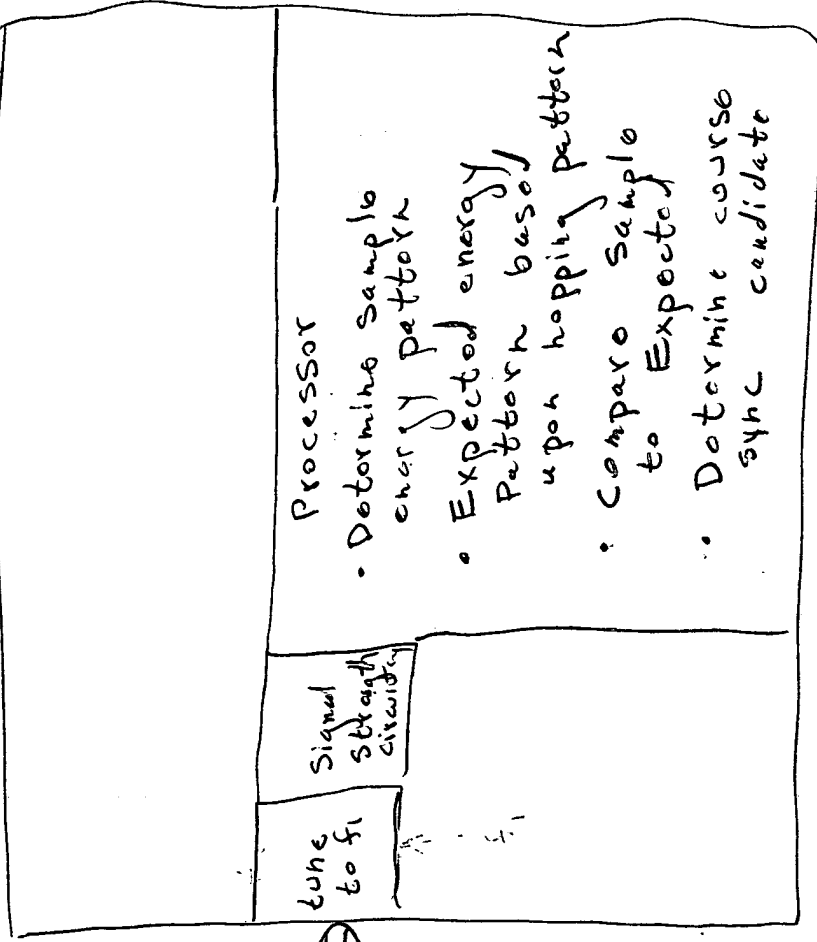 tune
to f1
Signal
Strength
circuitry
f1
Processor
• Determine sample
energy pattern
• Expected energy
Pattern based
upon hopping pattern
• Compare Sample
to Expected
• Determine course
sync candidate